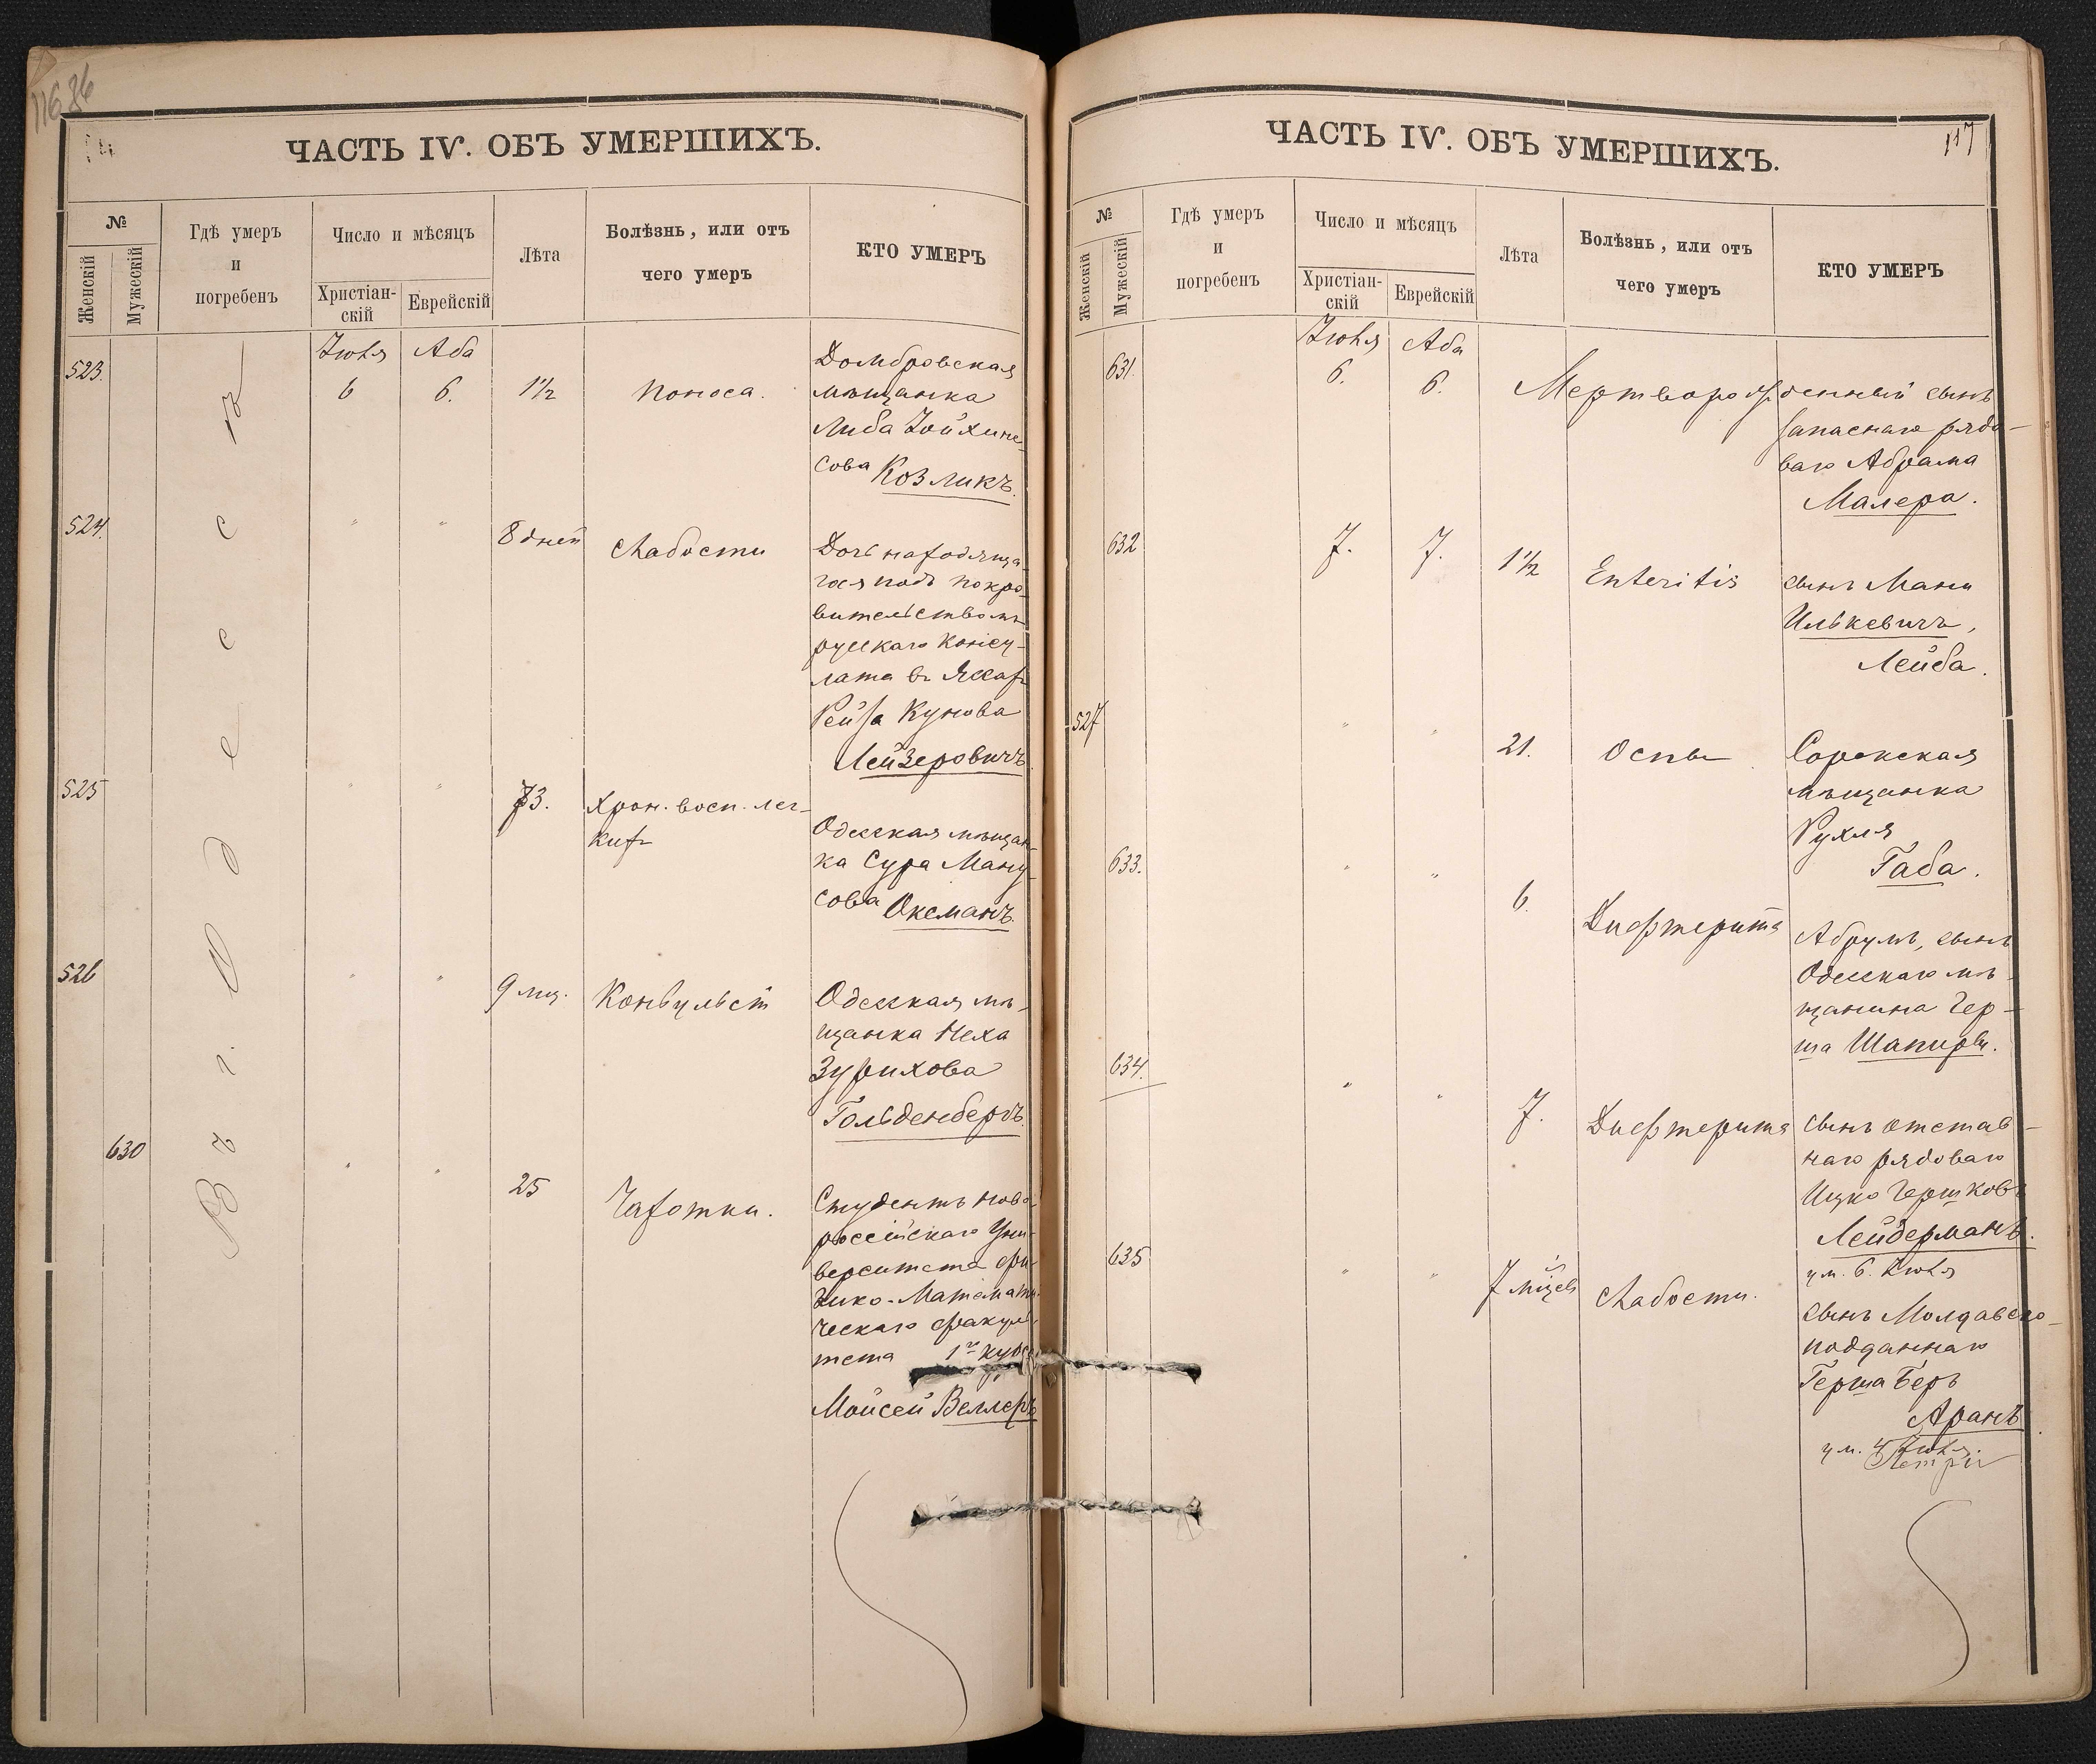 116
ЧАСТЬ IV. ОБЪ УМЕРШИХЪ.
№
Женскій
Мужескій
Гдѣ умеръ
и
погребенъ
Число и мѣсяцъ
Христіан-
скій
Еврейскій
Лѣта
Болѣзнь, или отъ
чего умеръ
КТО УМЕРЪ
Въ г. Одессѣ
Іюля Аба
523. 6 6. 1½ Поноса.
Домбровская
мѣщанка
Либа
сова Козликъ.
524. " " 8 дней Слабости
Дочь находяща-
гося подъ покро-
вительствомъ
русскаго консу-
лата въ Яссахъ
Рейза Кунова
Лейзеровичъ
525 " " 73. Хрон. восп. лег-
кихъ
Одесская мѣщан-
ка СураМану-
сова Оксманъ.
526 " " 9 мц. Конвульсій
Одесская мѣ-
щанка Неха
Зурихова
Гольденбергъ.
630 " " 25 Чахотки.
Студентъ Ново-
россійскаго Уни-
верситета фи-
зико-Математи-
ческаго факуль-
тета 1го курса
Мойсей Веллеръ
ЧАСТЬ IV. ОБЪ УМЕРШИХЪ.
117
№
Женскій
Мужескій
Гдѣ умеръ
и
погребенъ
Число и мѣсяцъ
Христіан-
скій
Еврейскій
Лѣта
Болѣзнь, или отъ
чего умеръ
КТО УМЕРЪ
Іюля Аба
631. 6. 6. Мертворожденный сынъ
запаснаго рядо-
ваго Абрама
Малера.
632 7. 7. 1½ Enteritis
сынъ Мани
Илькевичъ,
Лейба.
527 " " 21. Оспы
Сорокская
мѣщанка
Рухля
Габа.
633. " " 6. Дифтерита
Абрумъ, сынъ
Одесскаго мѣ-
щанина Гер-
ша Шапиры.
634. " " 7. Дифтерита
сынъ отстав-
наго рядоваго
Ицко Гершковъ
Лейдерманъ.
ум. 6. Іюля
635 " " 7 мѣцев Слабости.
сынъ Молдавско-
подданнаго
Герша Беръ
Аранъ
ум. 4 Іюля.